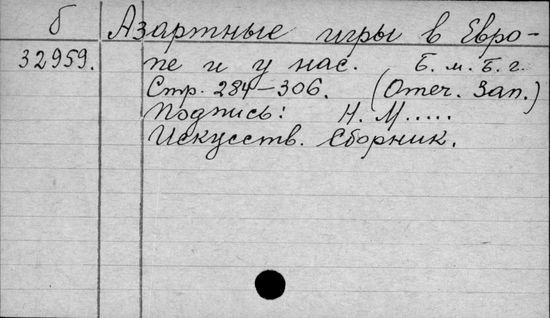 б Азартные игры в Евро-
32959. пе и у нас. Б. м. Б. г.
Стр. 284–306. (Отеч. Зап.)
Подпись: Н. М.....
Искусств. Сборник.